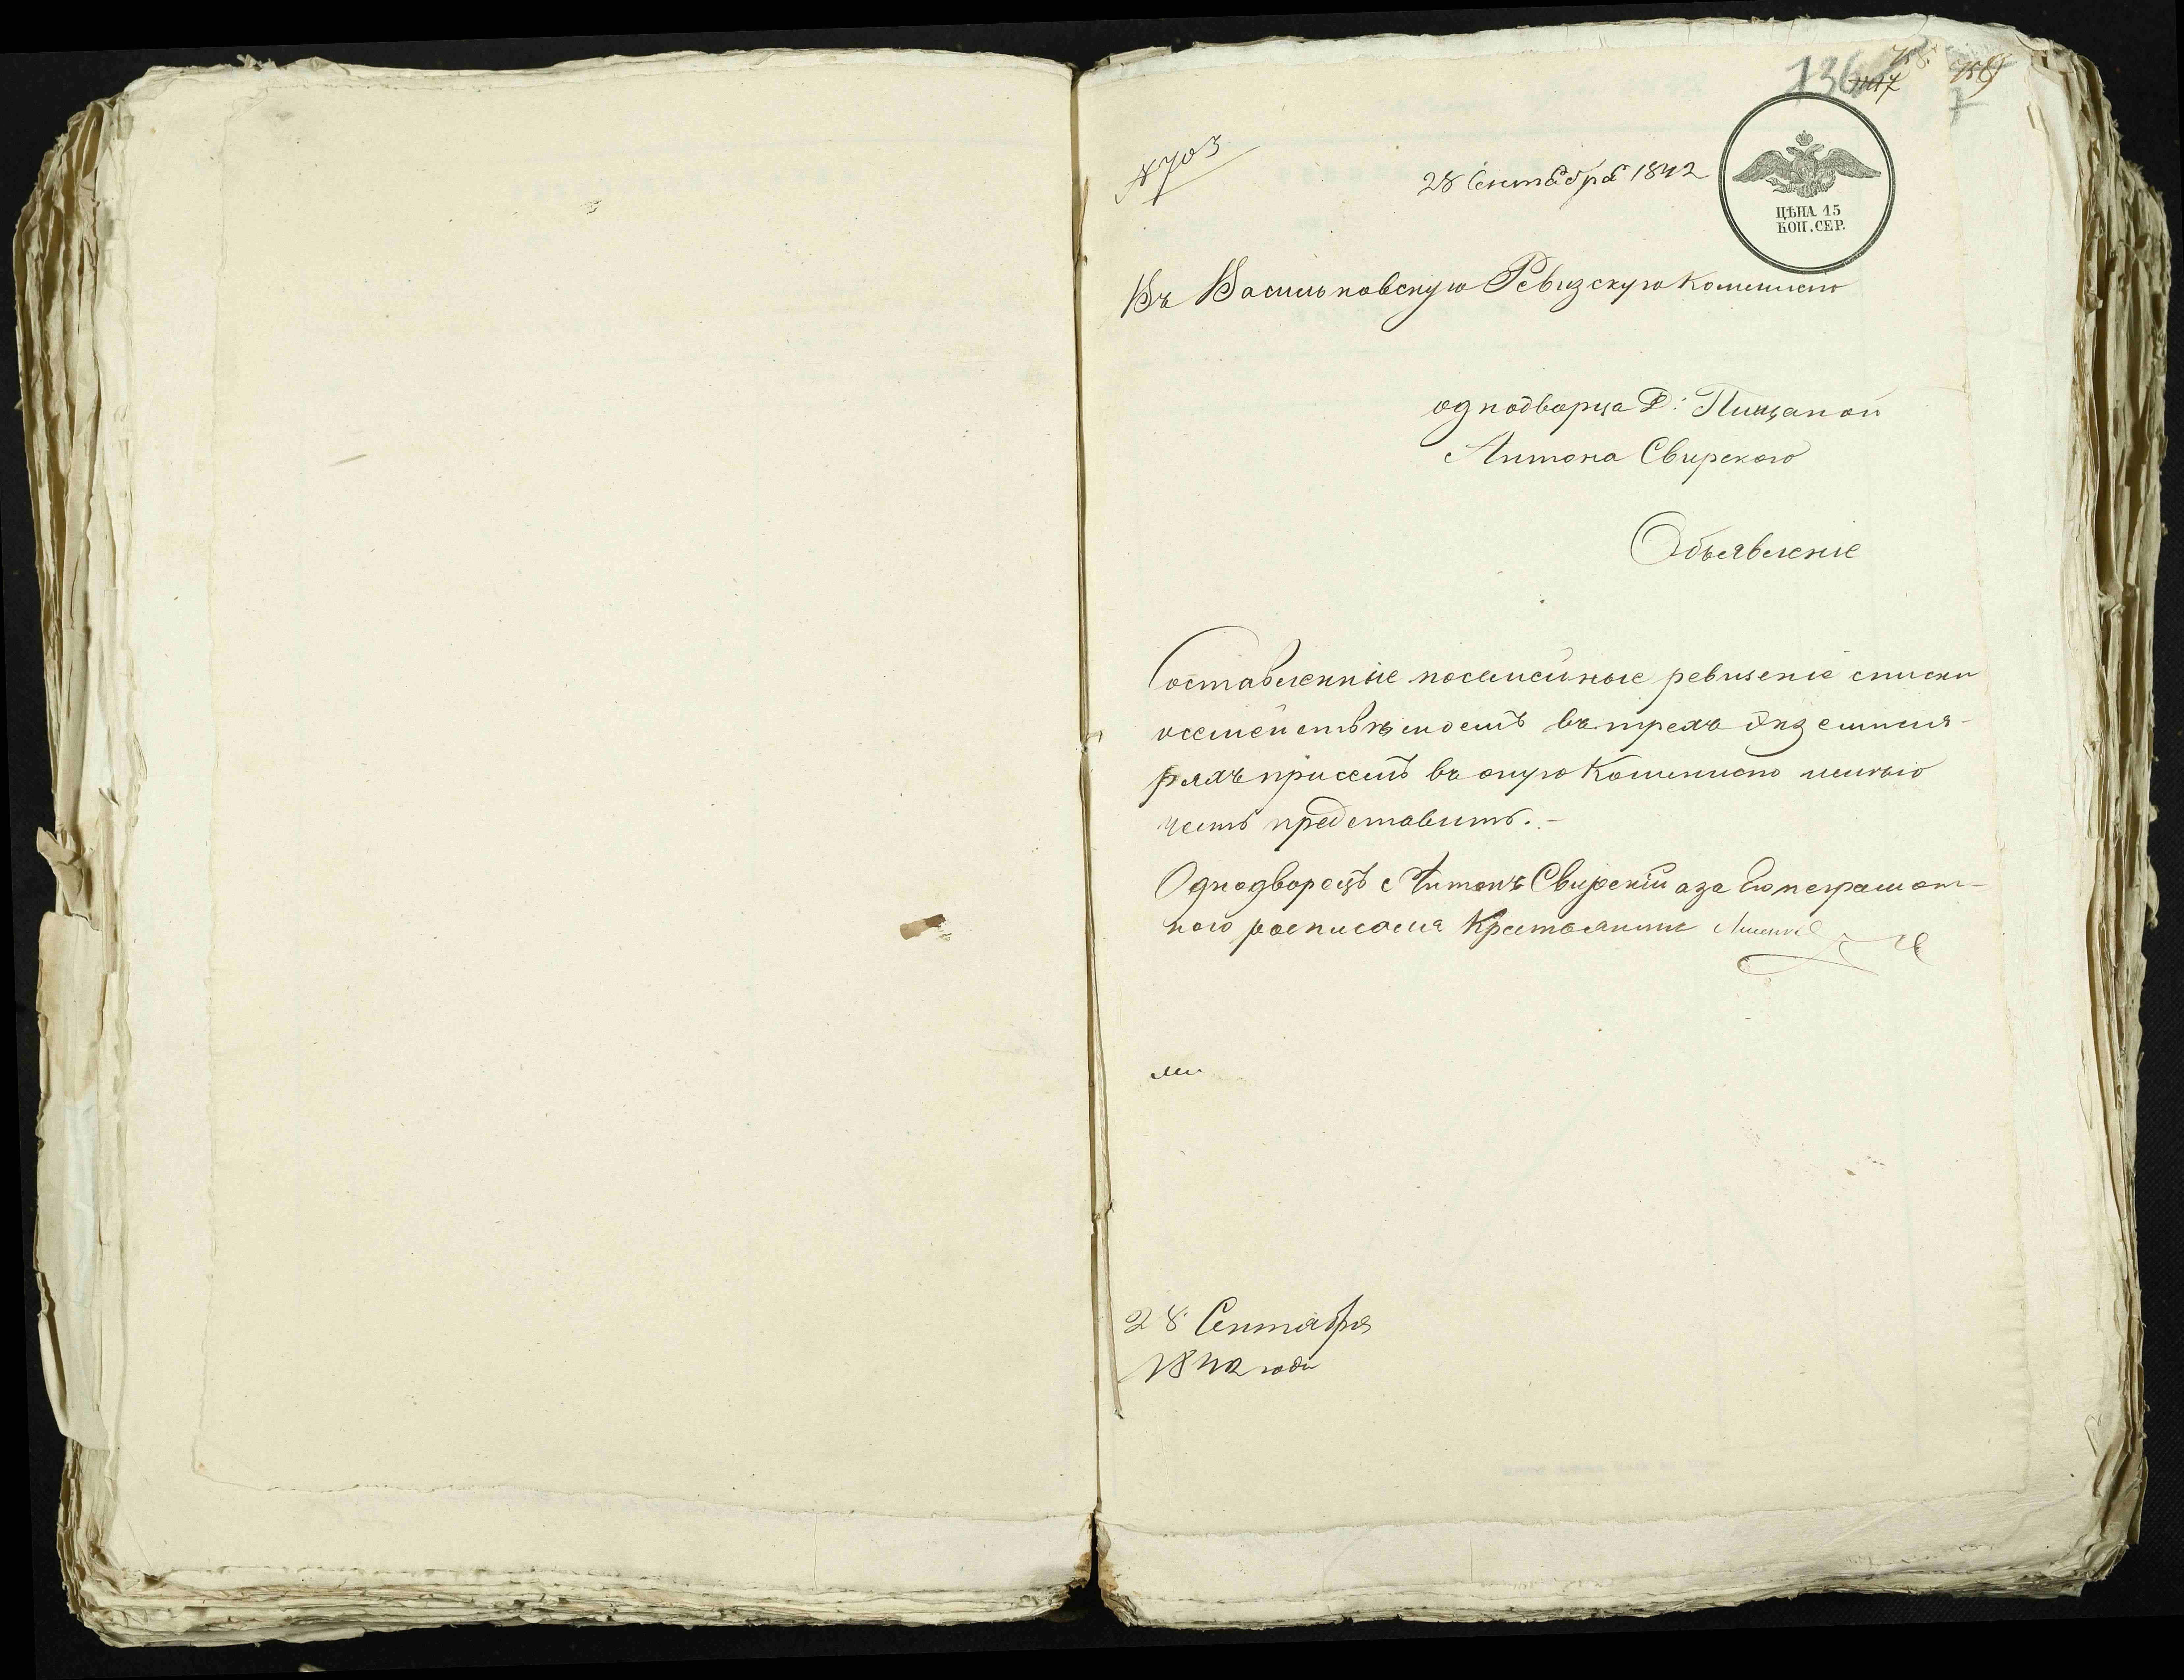 136
№ 703
28 Сентября 1842
ЦѢНА 15
КОП. СЕР.
Въ Васильковскую Ревизскую Комисию
однодворца Д: Пищаной
Антона Свирского
Объявление
Составленные посемейные ревизские списки
о семействѣ моемъ въ трехъ экземпля-
ряхъ при семъ въ оную Комисию
честь представить. -
Однодворецъ Антонъ Свирский а за его неграмот-
ного росписался Крестьянинъ
28 Сентября
1842 года